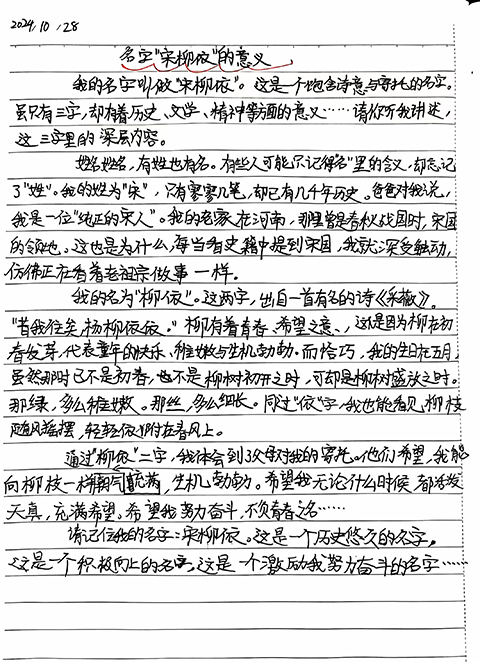 2024.10.28
名字"宋柳依"的意义
我的名字叫做"宋柳依"。这是一个饱含诗意与寄托的名字。
虽只有三字,却有着历史、文学、精神等方面的意义……请你听我讲述,
这三字里的深层内容。
姓名姓名,有姓也有名。有些人可能只记得名"里的含义,却忘记
了"姓"。我的姓为"宋",只有寥寥几笔,却已有几千年历史。爸爸对我说,
我是一位"纯正的宋人"。我的老家在河南,那里曾是春秋战国时,宋国
的领地。这也是为什么,每当看史籍中提到宋国,我就深受触动,
仿佛正在看着老祖宗做事一样。
我的名为"柳依"。这两字,出自一首有名的诗《采薇》。
"昔我往矣,杨柳依依。"柳有着青春、希望之意、,这是因为柳在初
春发芽,代表童年的快乐、稚嫩与生机勃勃。而恰巧,我的生日在五月,
虽然那时已不是初春,也不是柳树初开之时,可却是柳树盛放之时。
那绿,多么稚嫩。那丝,多么细长。同过"依"字,我也能看见,柳枝
随风摇摆,轻轻依附在春风上。
通过"柳依"二字,我体会到了父母对我的寄托。他们希望,我能
向柳枝一样朝气蓬勃,生机勃勃。希望我无论什么时候,都活发
天真,充满希望。希望我努力奋斗,不负青春之名……
请记住我的名字:宋柳依。这是一个历史悠久的名字,
这是一个积极向上的名字,这是一个激励我努力奋斗的名字……